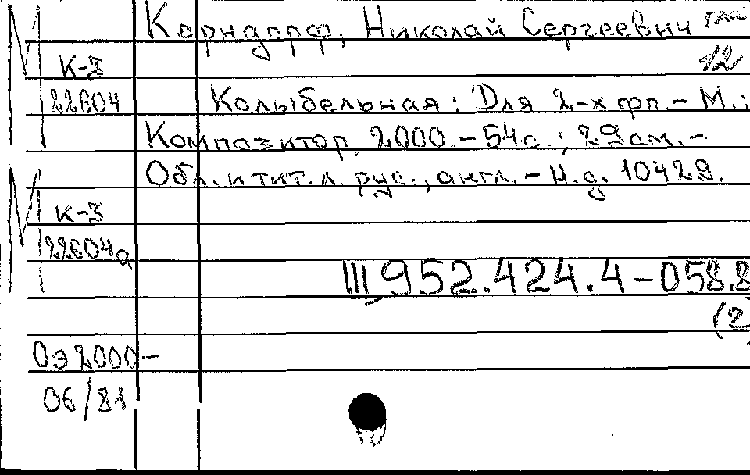 Корндорф, Николай Сергеевич
12
М К-3
22604 Колыбельная: Для 2-х фп. - М.:
Композитор, 2000. - 54с.; 29см. -
Обл. и тит. л. рус., англ. - Н.д. 10429.
М К-3
22604а
III, 952.424.4-058.8
(2
Оэ2000-
06/81